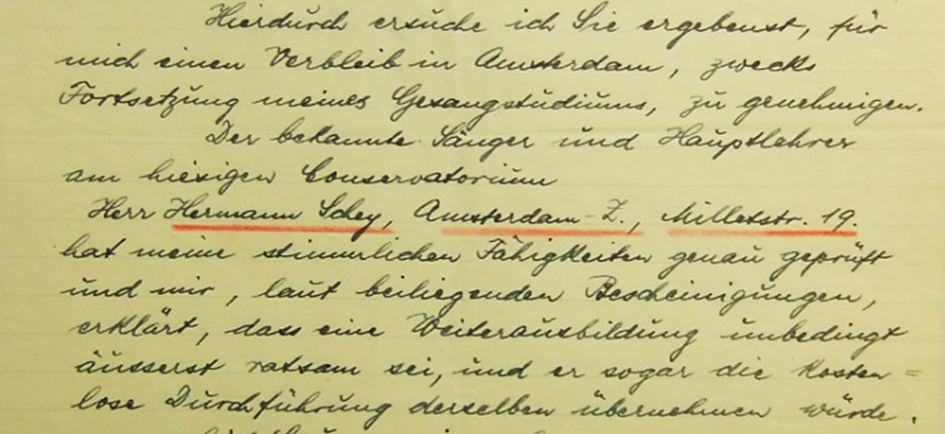 Hierdurch ersuche ich Sie ergebenst, für
mich einen Verbleib in Amsterdam, zwecks
Fortsetzung meines Gesangstudiums, zu genehmigen.
Der bekannte Sänger und Hauptlehrer
am hiesigen Conservatorium
Herr Hermann Schey, Amsterdam-Z., Milletstr. 19.
hat meine stimmlichen Fähigkeiten genau geprüft
und mir, laut beiliegenden Bescheinigungen,
erklärt, dass eine Weiterausbildung unbedingt
äusserst ratsam sei, und er sogar die kosten=
lose Durchführung derselben übernehmen würde.